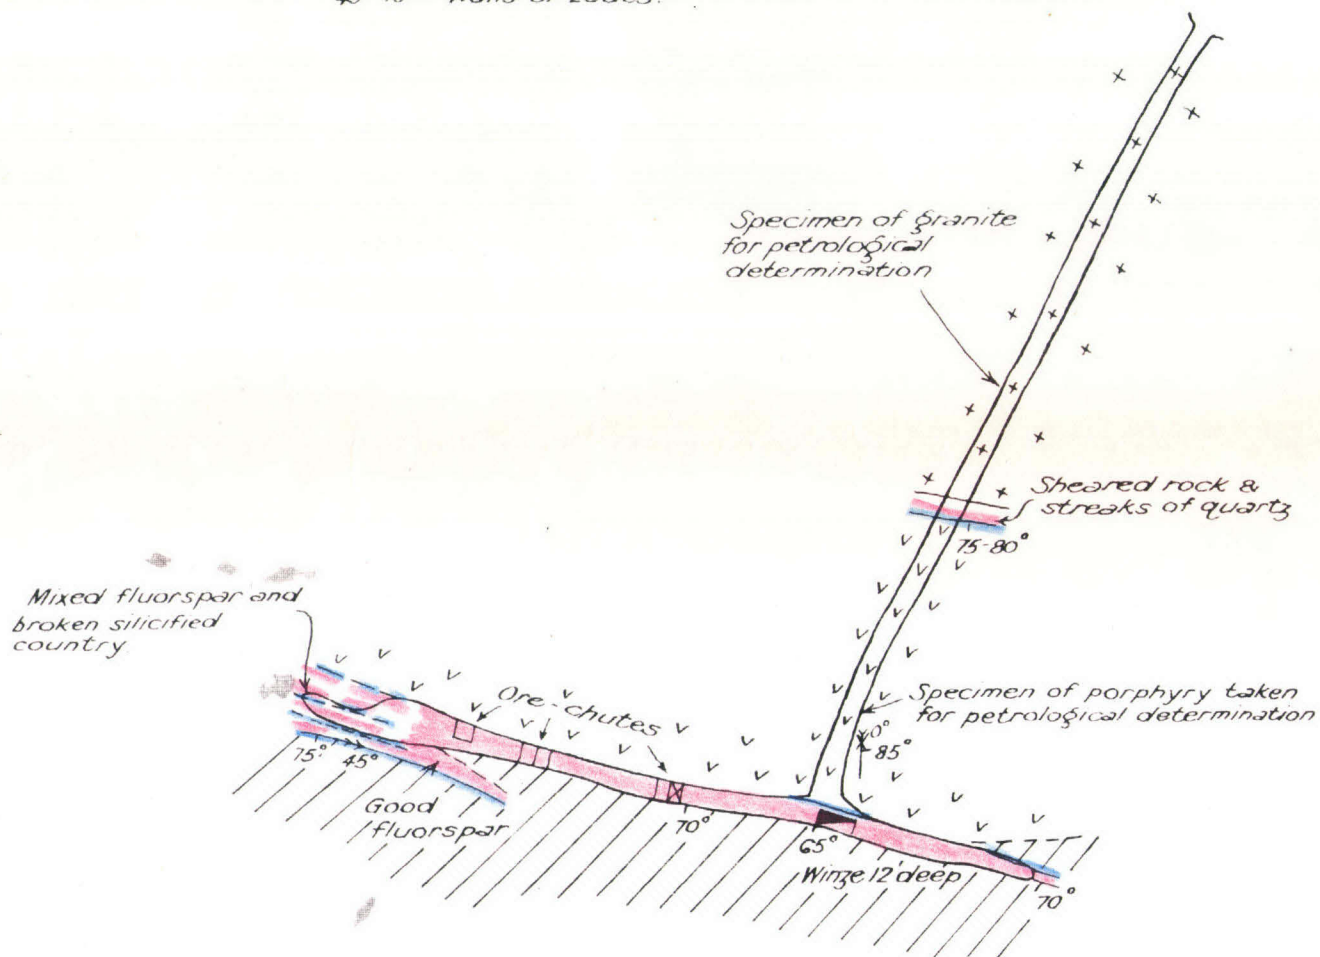 Walls of Lodes.
Specimen of granite
for petrological
determination
Sheared rock &
streaks of quartz
75-80°
Mixed fluorspar and
broken silicified
country.
Ore-chutes
Specimen of porphyry taken
for petrological determination
85°
75°
45°
Good
fluorspar
70°
65°
Winze 12' deep
70°